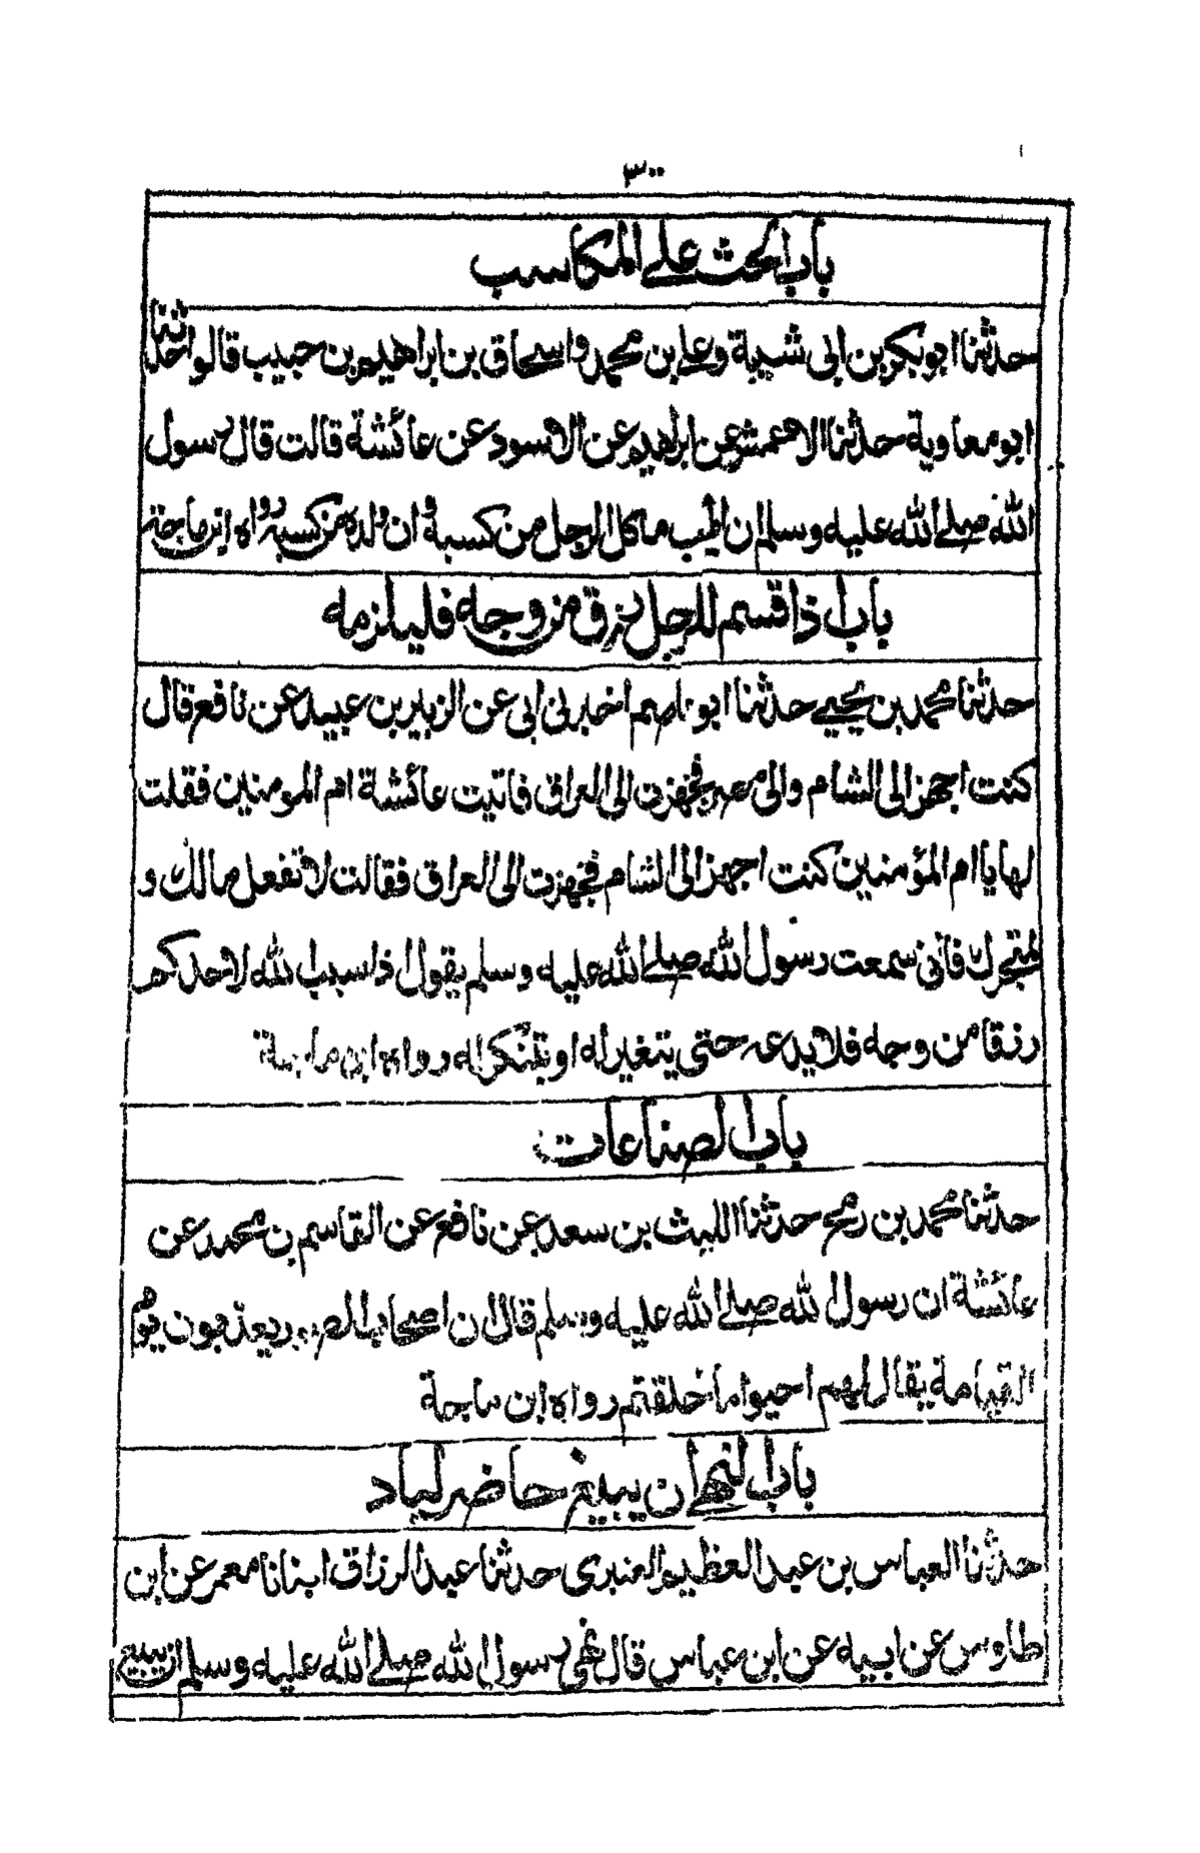 ٣٠٠
باب الحث على المكاسب
حدثنا ابو بكر بن ابى شيبة وعلي بن محمد واسحاق بن ابراهيم بن حبيب قالوا حدثنا
ابو معاوية حدثنا الاعمش عن ابراهيم عن الاسود عن عائشة قالت قال رسول
الله صلے الله عليه وسلم ان اطيب ما اكل الرجل من كسبه وان ولده من كسبه رواه ابن ماجة
باب اذا قسم للرجل رزق من وجه فليلزمه
حدثنا محمد بن يحيى حدثنا ابو عاصم اخبرنى ابى عن الزبير بن عبيد عن نافع قال
كنت اجهز الى الشام والى مصر فجهزت الى العراق فاتيت عائشة ام المومنين فقلت
لها يا ام المؤمنين كنت اجهز الى الشام فجهزت الى العراق فقالت لا تفعل مالك و
لمتجرك فانى سمعت رسول الله صلے الله عليه وسلم يقول اذا سبب الله لاحدكم
رزقا من وجه فلا يدعه حتى يتغير له او يتنكر له رواه ابن ماجة
باب الصناعات
حدثنا محمد بن رمح حدثنا الليث بن سعد عن نافع عن القاسم بن محمد عن
عائشة ان رسول الله صلے الله عليه وسلم قال ان اصحاب الصور يعذبون يوم
القيامة يقال لهم احيوا ما خلقتم رواه ابن ماجة
باب النهى ان يبيع حاضر لباد
حدثنا العباس بن عبد العظيم العنبرى حدثنا عبد الرزاق انبانا معمر عن ابن
طاوس عن ابيه عن ابن عباس قال نهى رسول الله صلے الله عليه وسلم ان يبيع